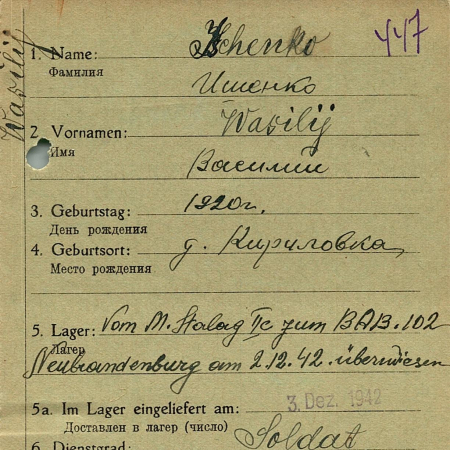 447
Wasilij
1. Name: Ischenko
Фамилия
Ишенко
2 Vornamen: Wasilij
Имя
Василий
3. Geburtstag: 1920 г.
День рождения
4. Geburtsort: д. Кириловка
Место рождения
5. Lager: Vom M. Stalag IIc zum BAB. 102
Лагерь
Neubrandenburg am 2.12.42. überwiesen
5a. Im Lager eingeliefert am: 3. Dez. 1942
Доставлен в лагерь (число)
6. Dienstgrad: Soldat